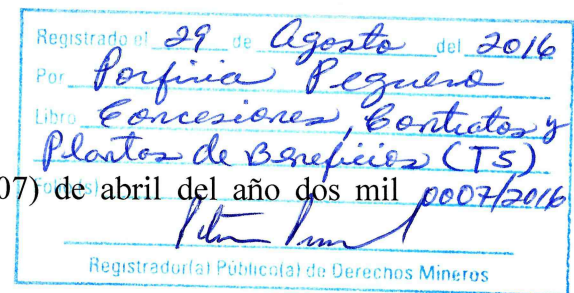 Registrado el 29 de Agosto del 2016
Por Porfiria Peguero
Libro Concesiones, Contratos y
Plantas de Beneficios (TS)
07) de abril del año dos mil
Folio(s) 0007/2016
Registrador(a) Público(a) de Derechos Mineros